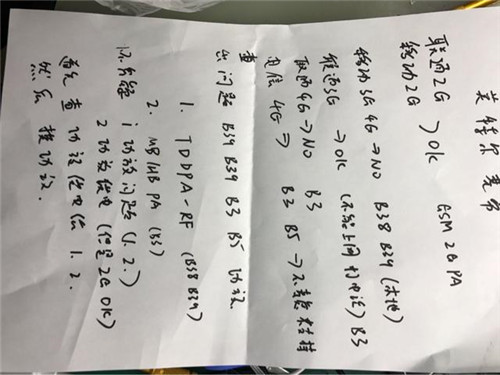 联通2G
移动2G >OK GSM 2G PA
移动3G 4G→NO B38 B34 (本地)
联通3G →OK (不能上网 打电话) B3
联通4G→NO B3
电信 4G ⇒ B3 B5 →不考虑
查
出问题 B39 B34 B3 B5 功放
1. TDDPA-RF (B38 B34)
2. MB/HB PA (B3)
1 功放问题 (1.2.)
2 功放供电 (但是2G OK)
首先 查 功放供电位 1.2.
然后 换功放.